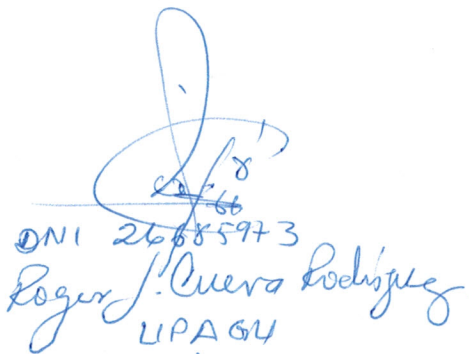 DNI 26685973
Roger J. Cueva Rodríguez
UPAGU